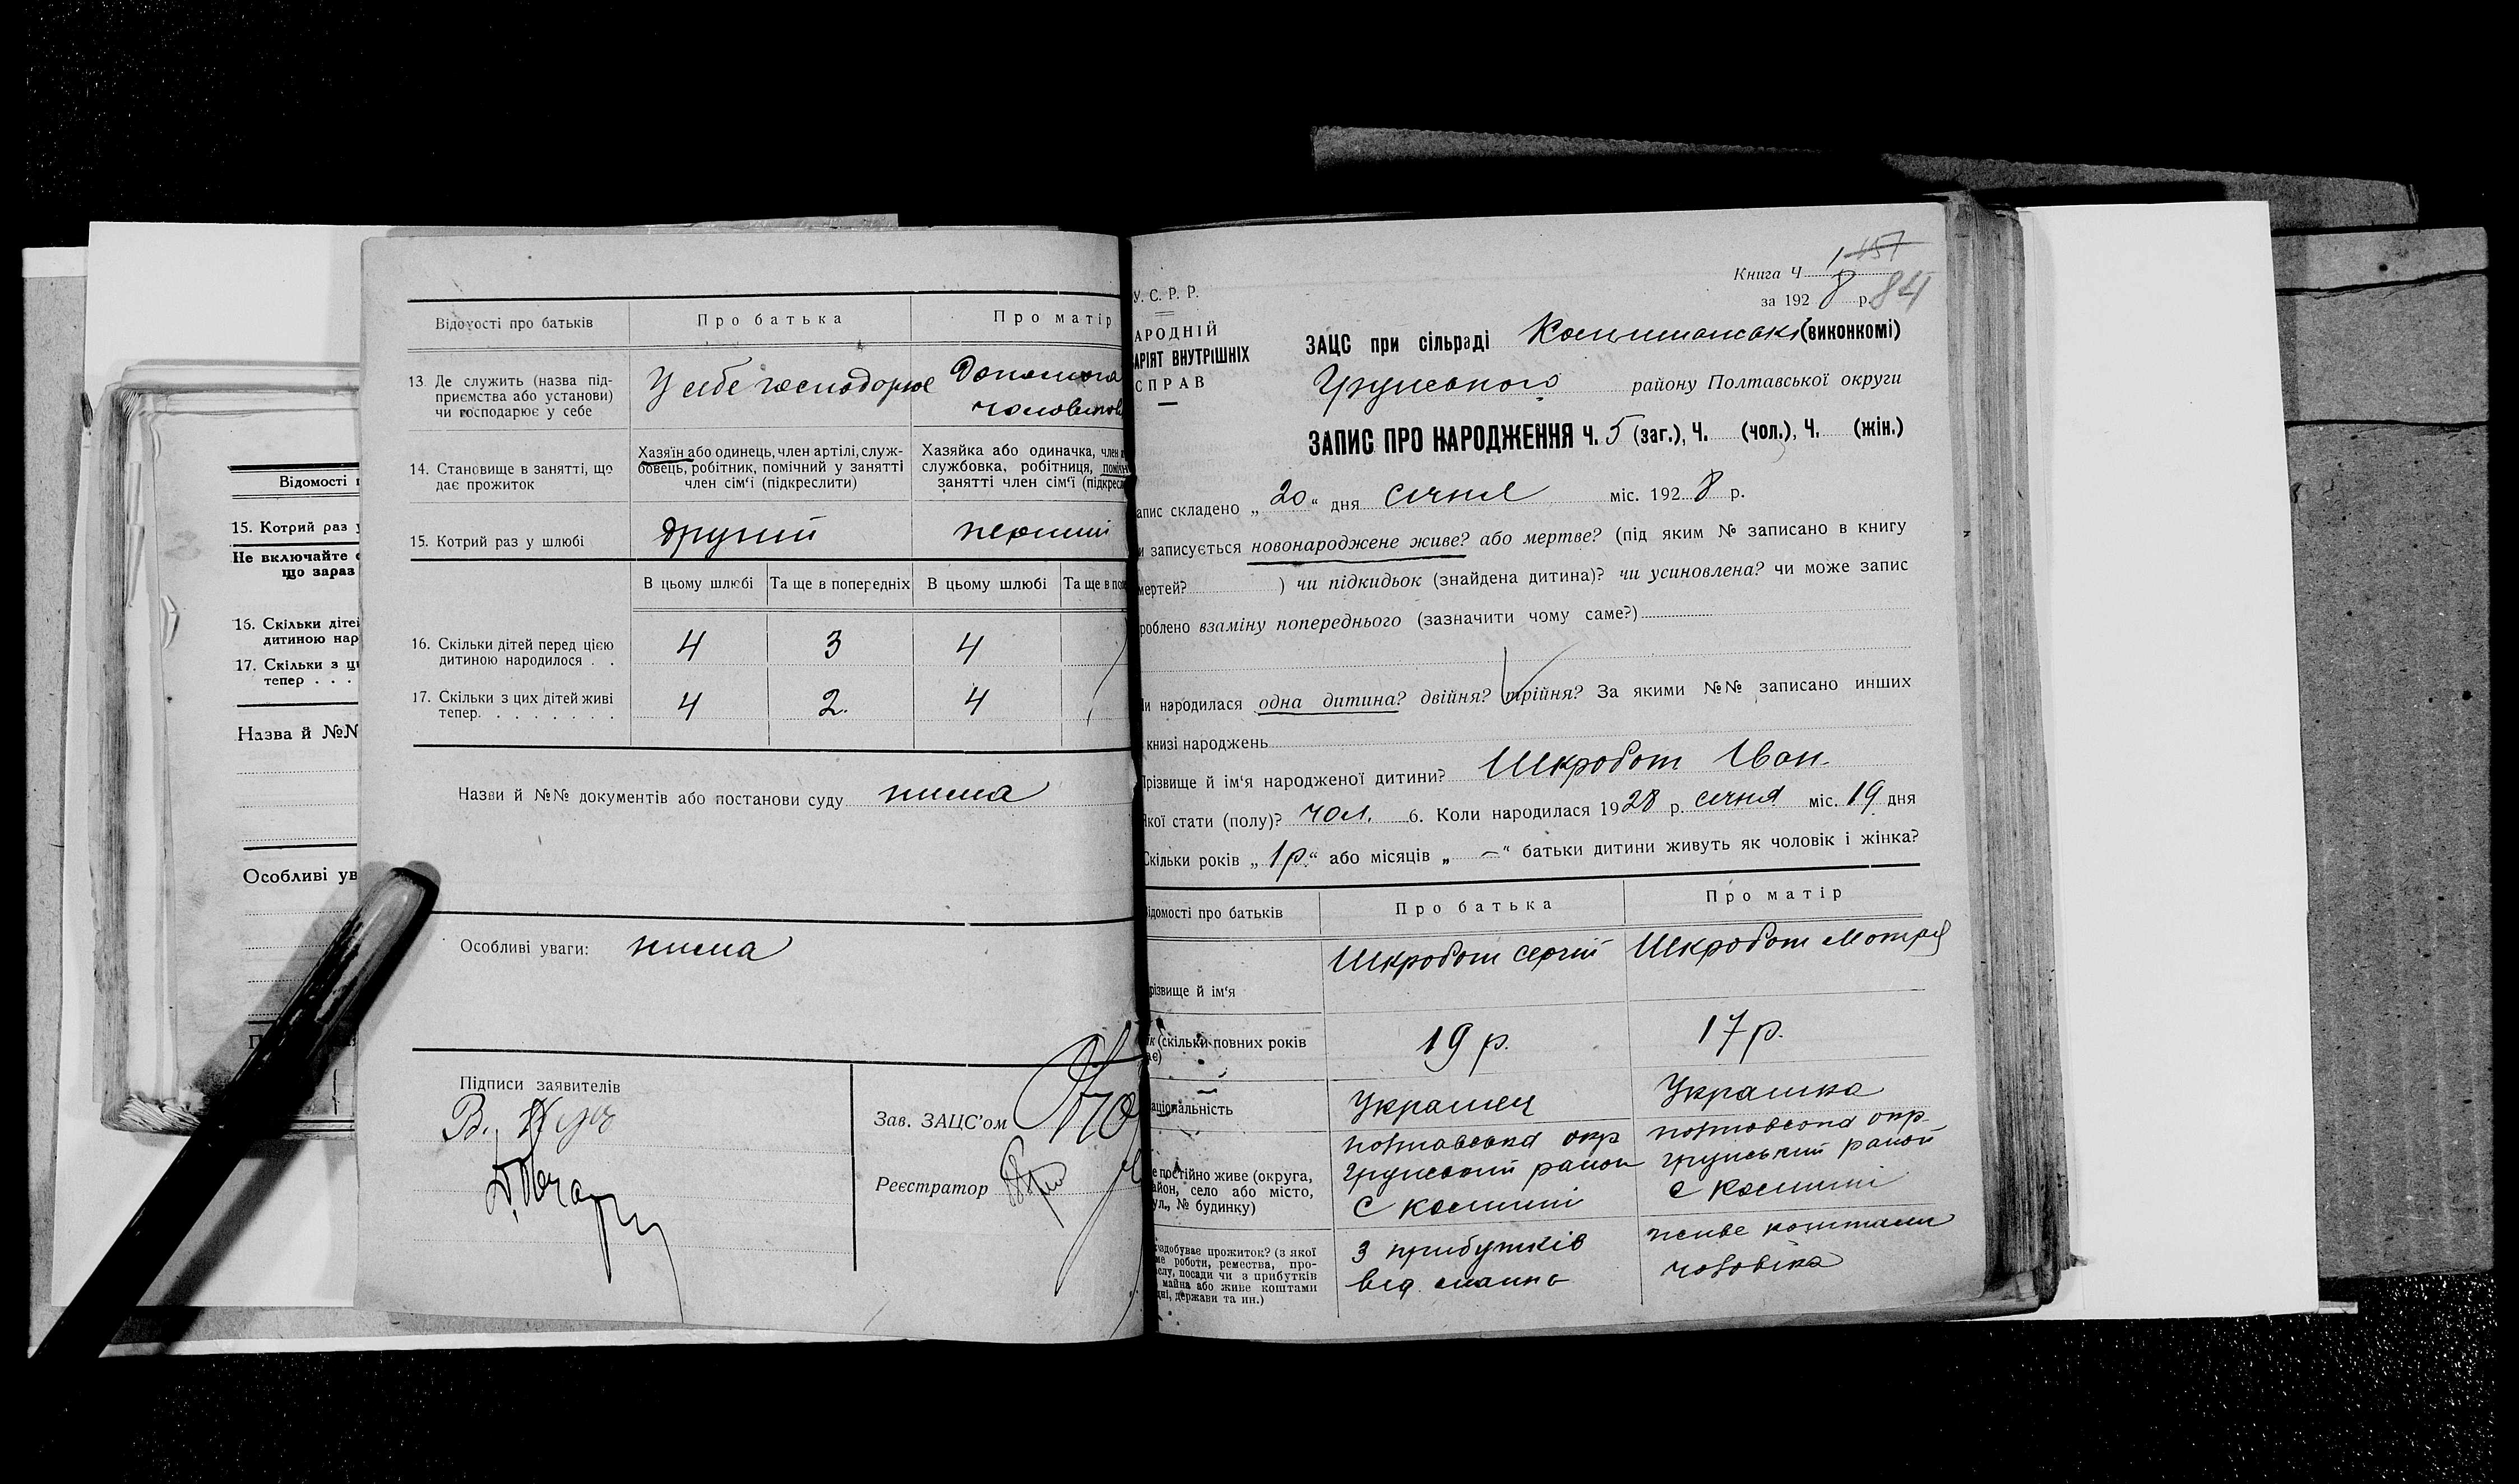 Відомості
15. Котрий раз у
Не включайте
що зараз
16. Скільки дітей
дитиною нар
17. Скільки з ци
тепер . . .
Назва й №№
Особливі ув
Відомості про батьків
Про батька
Про матір
13. Де служить (назва під-
приємства або установи)
чи господарює у себе
У себе господорює
Допомога
14. Становище в занятті, що
дає прожиток
Хазяїн або одинець, член артілі, служ-
бовець, робітник, помічний у занятті
член сім'ї (підкреслити)
Хазяйка або одиначка, член
службовка, робітниця, поміч
занятті член сім'ї (підкрес
15. Котрий раз у шлюбі
другий
перший
В цьому шлюбі
Та ще в попередніх
В цьому шлюбі
Та ще в поп
16. Скільки дітей перед цією
дитиною народилося . .
4
3
4
17. Скільки з цих дітей живі
тепер. . . . . . . .
4
2.
4
Назви й №№ документів або постанови суду нима
Особливі уваги: нима
Підписи заявителів
В.
Зав. ЗАЦС'ом
Реєстратор
Книга Ч 1 157
за 1928 р. 84
У. С. Р. Р.
АРОДНІЙ
АРІЯТ ВНУТРІШНІХ
СПРАВ
ЗАЦС при сільраді (виконкомі)
Грунського району Полтавської округи
ЗАПИС ПРО НАРОДЖЕННЯ Ч. 5 (заг.), Ч. (чол.), Ч. (жін.)
апис складено „20“ дня січня міс. 1928 р.
и записується новонароджене живе? або мертве? (під яким № записано в книгу
мертей? ) чи підкидьок (знайдена дитина)? чи усиновлена? чи може запис
роблено взаміну попереднього (зазначити чому саме?)
и народилася одна дитина? двійня? трійня? За якими №№ записано инших
книзі народжень
Прізвище й ім'я народженої дитини? Шкробот Іван
кої стати (полу)? чол. 6. Коли народилася 1928 р. січня міс. 19 дня
Скільки років „1р.“ або місяців „—“ батьки дитини живуть як чоловік і жінка?
ідомості про батьків
Про батька
Про матір
різвище й ім'я
Шкробот Сергій
Шкробот Мотря
ік (скільки повних років
ає)
19 р.
17 р.
аціональність
Украінец
Украінка
е постійно живе (округа,
айон, село або місто,
ул., № будинку)
полтавська окр
грунський район
с
полтавська окр.
грунський район
с
здобуває прожиток? (з якої
ме роботи, ремества, про-
слу, посади чи з прибутків
майна або живе коштами
дні, держави та ин.)
З прибутків
від майна
живе коштами
чоловіка